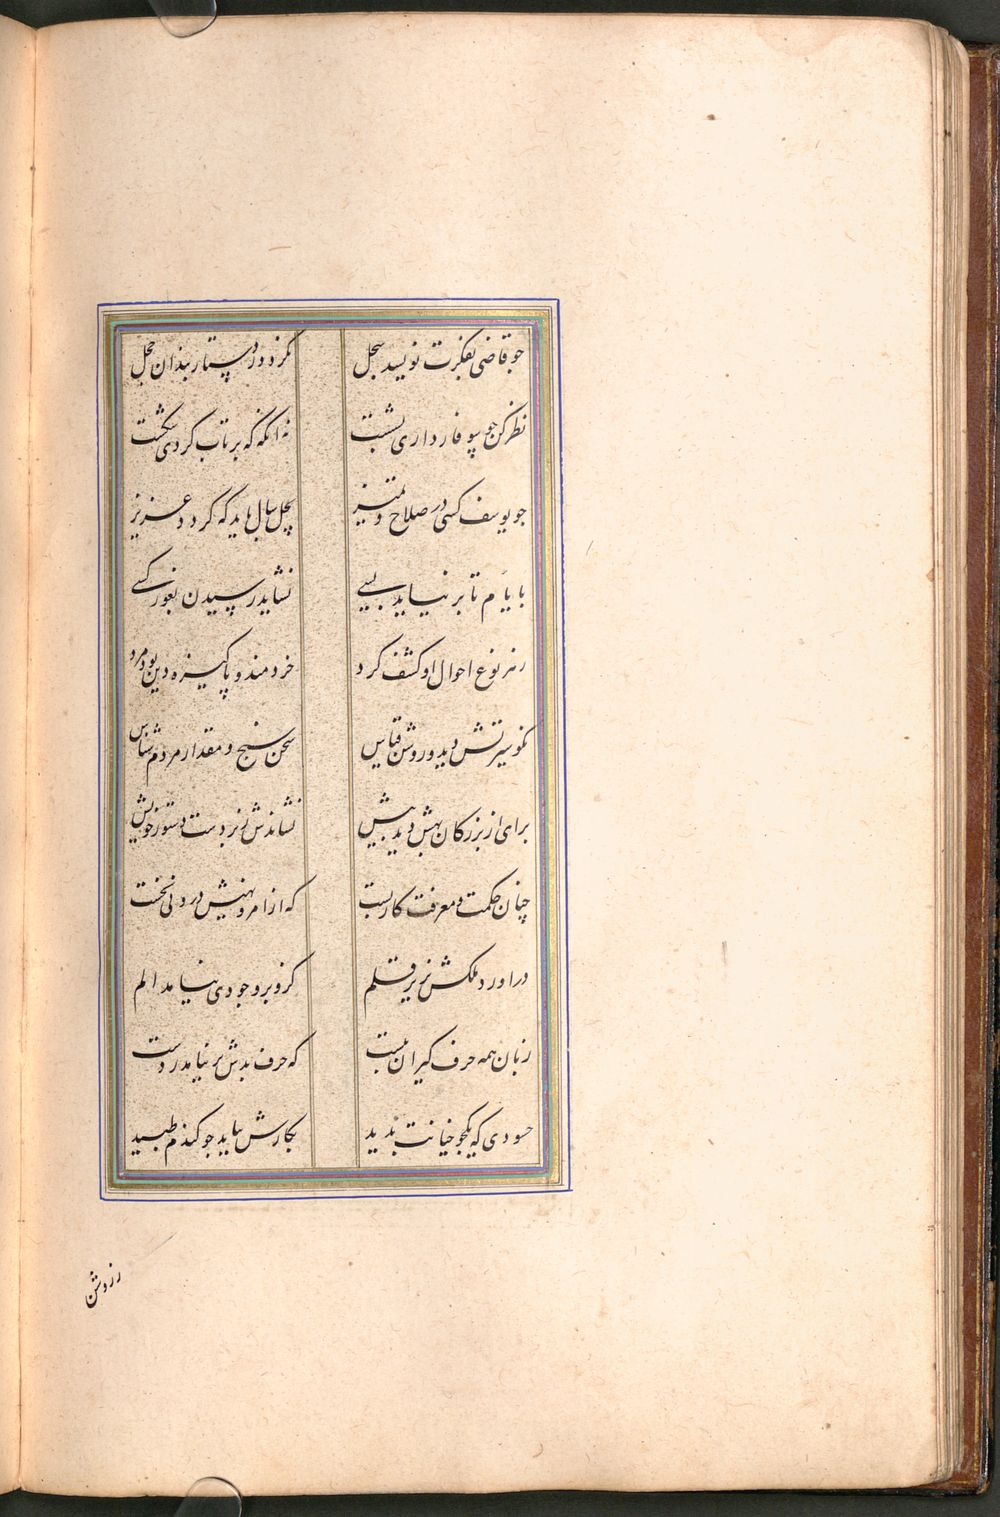 چو قاضی بفکرت نویسد سجل نگردد ز دستار بندان خجل
نظر کن چو سوفار داری بشست نه آنگه که پرتاب کردی ز شست
چو یوسف کسی در صلاح و تمیز بچل سال باید که گردد عزیز
بایام تا بر نیاید بسی نشاید رسیدن بغور کسی
ز هر نوع احوال او کشف کرد خردمند و پاکیزه دین بود مرد
نکو سیرتش دید و روشن قیاس سخن سنج و مقدار مردم شناس
برای از بزرگان بهش دید و بیش نشاندش زبر دست دستور خویش
چنان حکمت و معرفت کار بست که از امر و نهیش درونی نخست
در اورد ملکی بزیر قلم کزو بر وجودی نیامد الم
زبان همه حرف گیران ببست که حرف بدش بر نیامد ز دست
حسودی که یکجو خیانت ندید بکارش نیامد چو گندم طپید
ز روشن